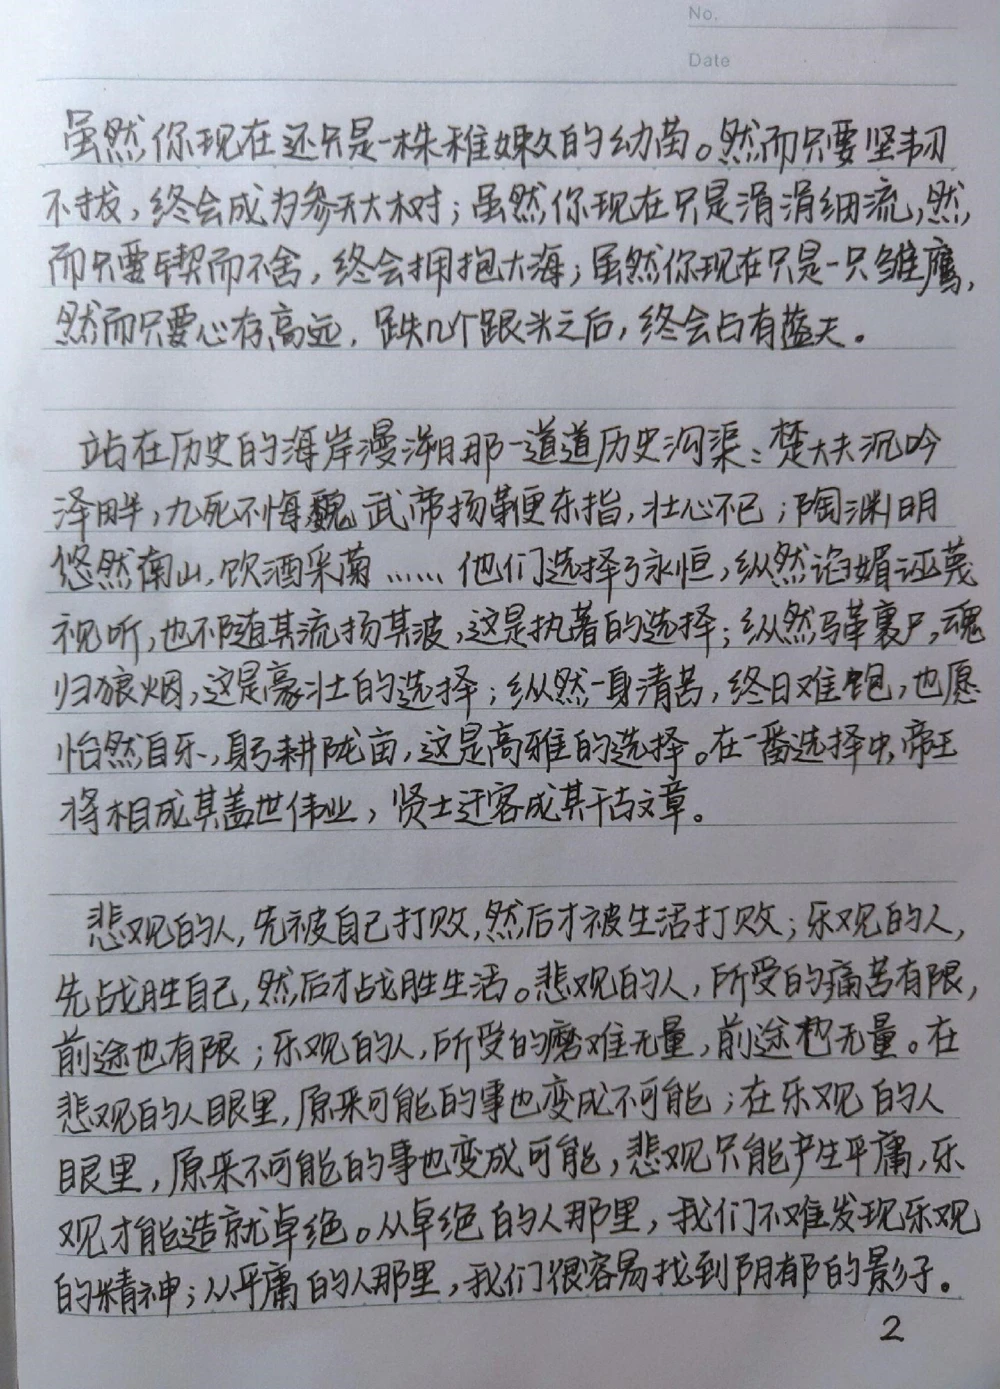 No.
Date
虽然你现在还只是一株稚嫩的幼苗。然而只要坚韧
不拔，终会成为参天大树；虽然你现在只是涓涓细流，然
而只要锲而不舍，终会拥抱大海；虽然你现在只是一只雏鹰，
然而只要心存高远，跌几个跟头之后，终会占有蓝天。
站在历史的海岸漫溯那一道道历史沟渠：楚大夫沉吟
泽畔，九死不悔魏武帝扬鞭东指，壮心不已；陶渊明
悠然南山，饮酒采菊……他们选择了永恒，纵然谄媚诬蔑
视听，也不随其流扬其波，这是执著的选择；纵然马革裹尸，魂
归狼烟，这是豪壮的选择；纵然一身清苦，终日难饱，也愿
怡然自乐、躬耕陇亩，这是高雅的选择。在一番选择中，帝王
将相成其盖世伟业，贤士迁客成其千古文章。
悲观的人，先被自己打败，然后才被生活打败；乐观的人，
先战胜自己，然后才战胜生活。悲观的人，所受的痛苦有限，
前途也有限；乐观的人，所受的磨难无量，前途也无量。在
悲观的人眼里，原来可能的事也变成不可能；在乐观的人
眼里，原来不可能的事也变成可能，悲观只能产生平庸，乐
观才能造就卓绝。从卓绝的人那里，我们不难发现乐观
的精神；从平庸的人那里，我们很容易找到阴郁的影子。
2